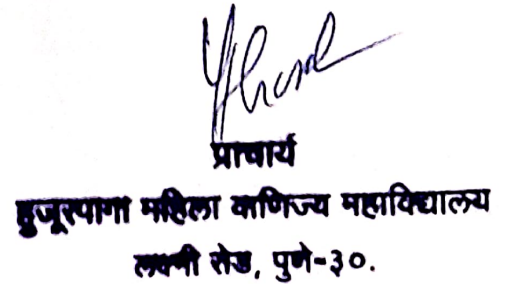 प्राचार्य
हुजूरपागा महिला वाणिज्य महाविद्यालय
लक्ष्मी रोड, पुणे-३०.